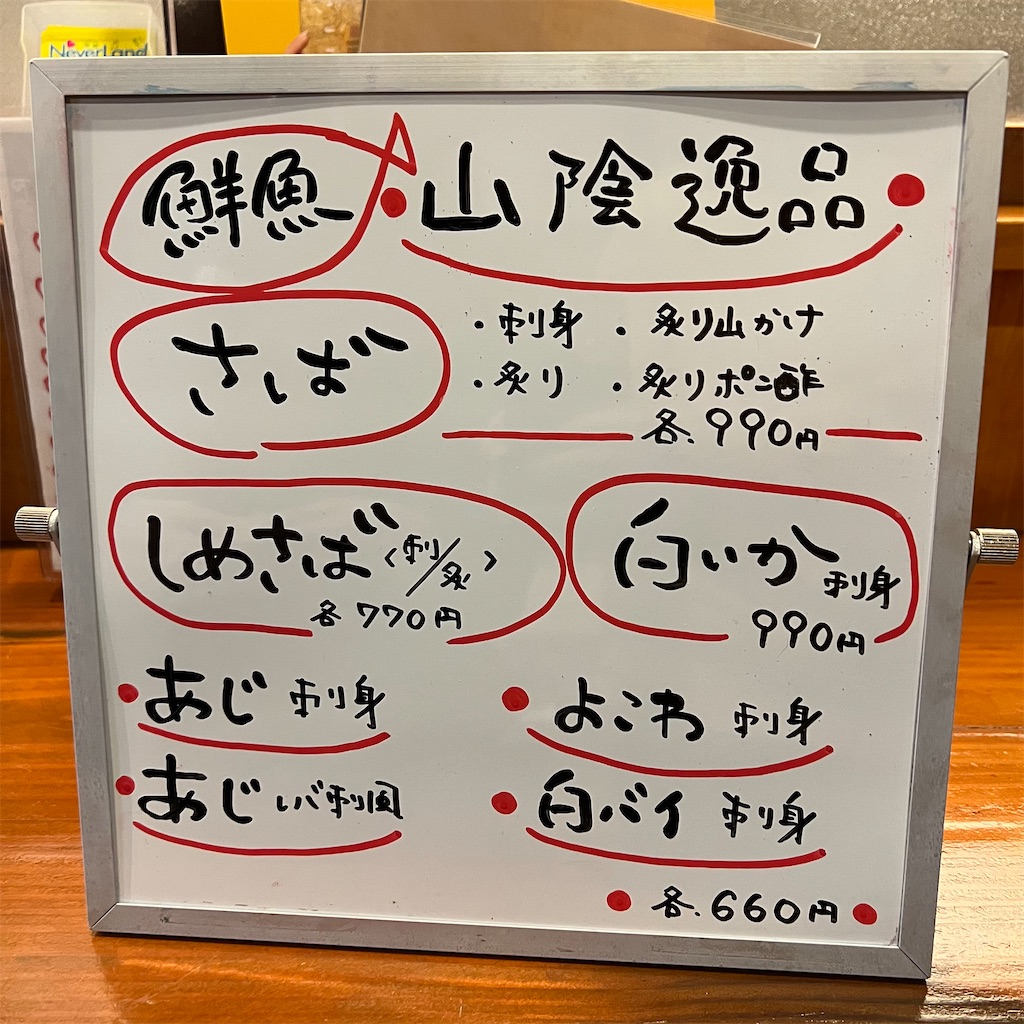 NeverLand
鮮魚 ・山陰逸品・
さば
・刺身 ・炙り山かけ
・炙り ・炙りポン酢
各.990円
しめさば〈刺/炙〉
各770円
白いか 刺身
990円
・あじ 刺身
・よこわ 刺身
・あじ レバ刺風
・白バイ 刺身
・各.660円・